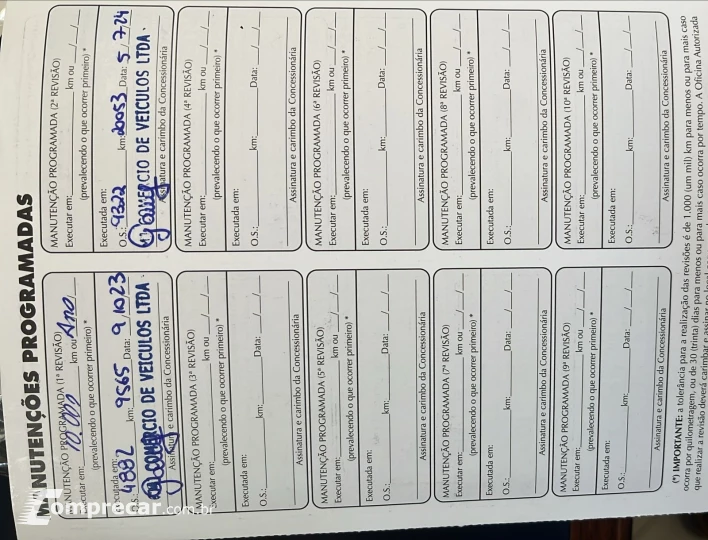 MANUTENÇÕES PROGRAMADAS
MANUTENÇÃO PROGRAMADA (1ª REVISÃO)
Executar em: 10.000 km ou Ano
(prevalecendo o que ocorrer primeiro) *
Executada em:
O.S.: 4882 km: 9565 Data: 9/10/23
COMÉRCIO DE VEÍCULOS LTDA.
Assinatura e carimbo da Concessionária
MANUTENÇÃO PROGRAMADA (2ª REVISÃO)
Executar em: km ou / /
(prevalecendo o que ocorrer primeiro) *
Executada em:
O.S.: 9322 km: 20053 Data: 5/7/24
COMÉRCIO DE VEÍCULOS LTDA.
Assinatura e carimbo da Concessionária
MANUTENÇÃO PROGRAMADA (3ª REVISÃO)
Executar em: km ou / /
(prevalecendo o que ocorrer primeiro) *
Executada em:
O.S.: km: Data: / /
Assinatura e carimbo da Concessionária
MANUTENÇÃO PROGRAMADA (4ª REVISÃO)
Executar em: km ou / /
(prevalecendo o que ocorrer primeiro) *
Executada em:
O.S.: km: Data: / /
Assinatura e carimbo da Concessionária
MANUTENÇÃO PROGRAMADA (5ª REVISÃO)
Executar em: km ou / /
(prevalecendo o que ocorrer primeiro) *
Executada em:
O.S.: km: Data: / /
Assinatura e carimbo da Concessionária
MANUTENÇÃO PROGRAMADA (6ª REVISÃO)
Executar em: km ou / /
(prevalecendo o que ocorrer primeiro) *
Executada em:
O.S.: km: Data: / /
Assinatura e carimbo da Concessionária
MANUTENÇÃO PROGRAMADA (7ª REVISÃO)
Executar em: km ou / /
(prevalecendo o que ocorrer primeiro) *
Executada em:
O.S.: km: Data: / /
Assinatura e carimbo da Concessionária
MANUTENÇÃO PROGRAMADA (8ª REVISÃO)
Executar em: km ou / /
(prevalecendo o que ocorrer primeiro) *
Executada em:
O.S.: km: Data: / /
Assinatura e carimbo da Concessionária
MANUTENÇÃO PROGRAMADA (9ª REVISÃO)
Executar em: km ou / /
(prevalecendo o que ocorrer primeiro) *
Executada em:
O.S.: km: Data: / /
Assinatura e carimbo da Concessionária
MANUTENÇÃO PROGRAMADA (10ª REVISÃO)
Executar em: km ou / /
(prevalecendo o que ocorrer primeiro) *
Executada em:
O.S.: km: Data: / /
Assinatura e carimbo da Concessionária
(*) IMPORTANTE: a tolerância para a realização das revisões é de 1.000 (um mil) km para menos ou para mais caso
ocorra por quilometragem, ou de 30 (trinta) dias para menos ou para mais caso ocorra por tempo. A Oficina Autorizada
que realizar a revisão deverá carimbar e assinar no local
comprecar.com.br